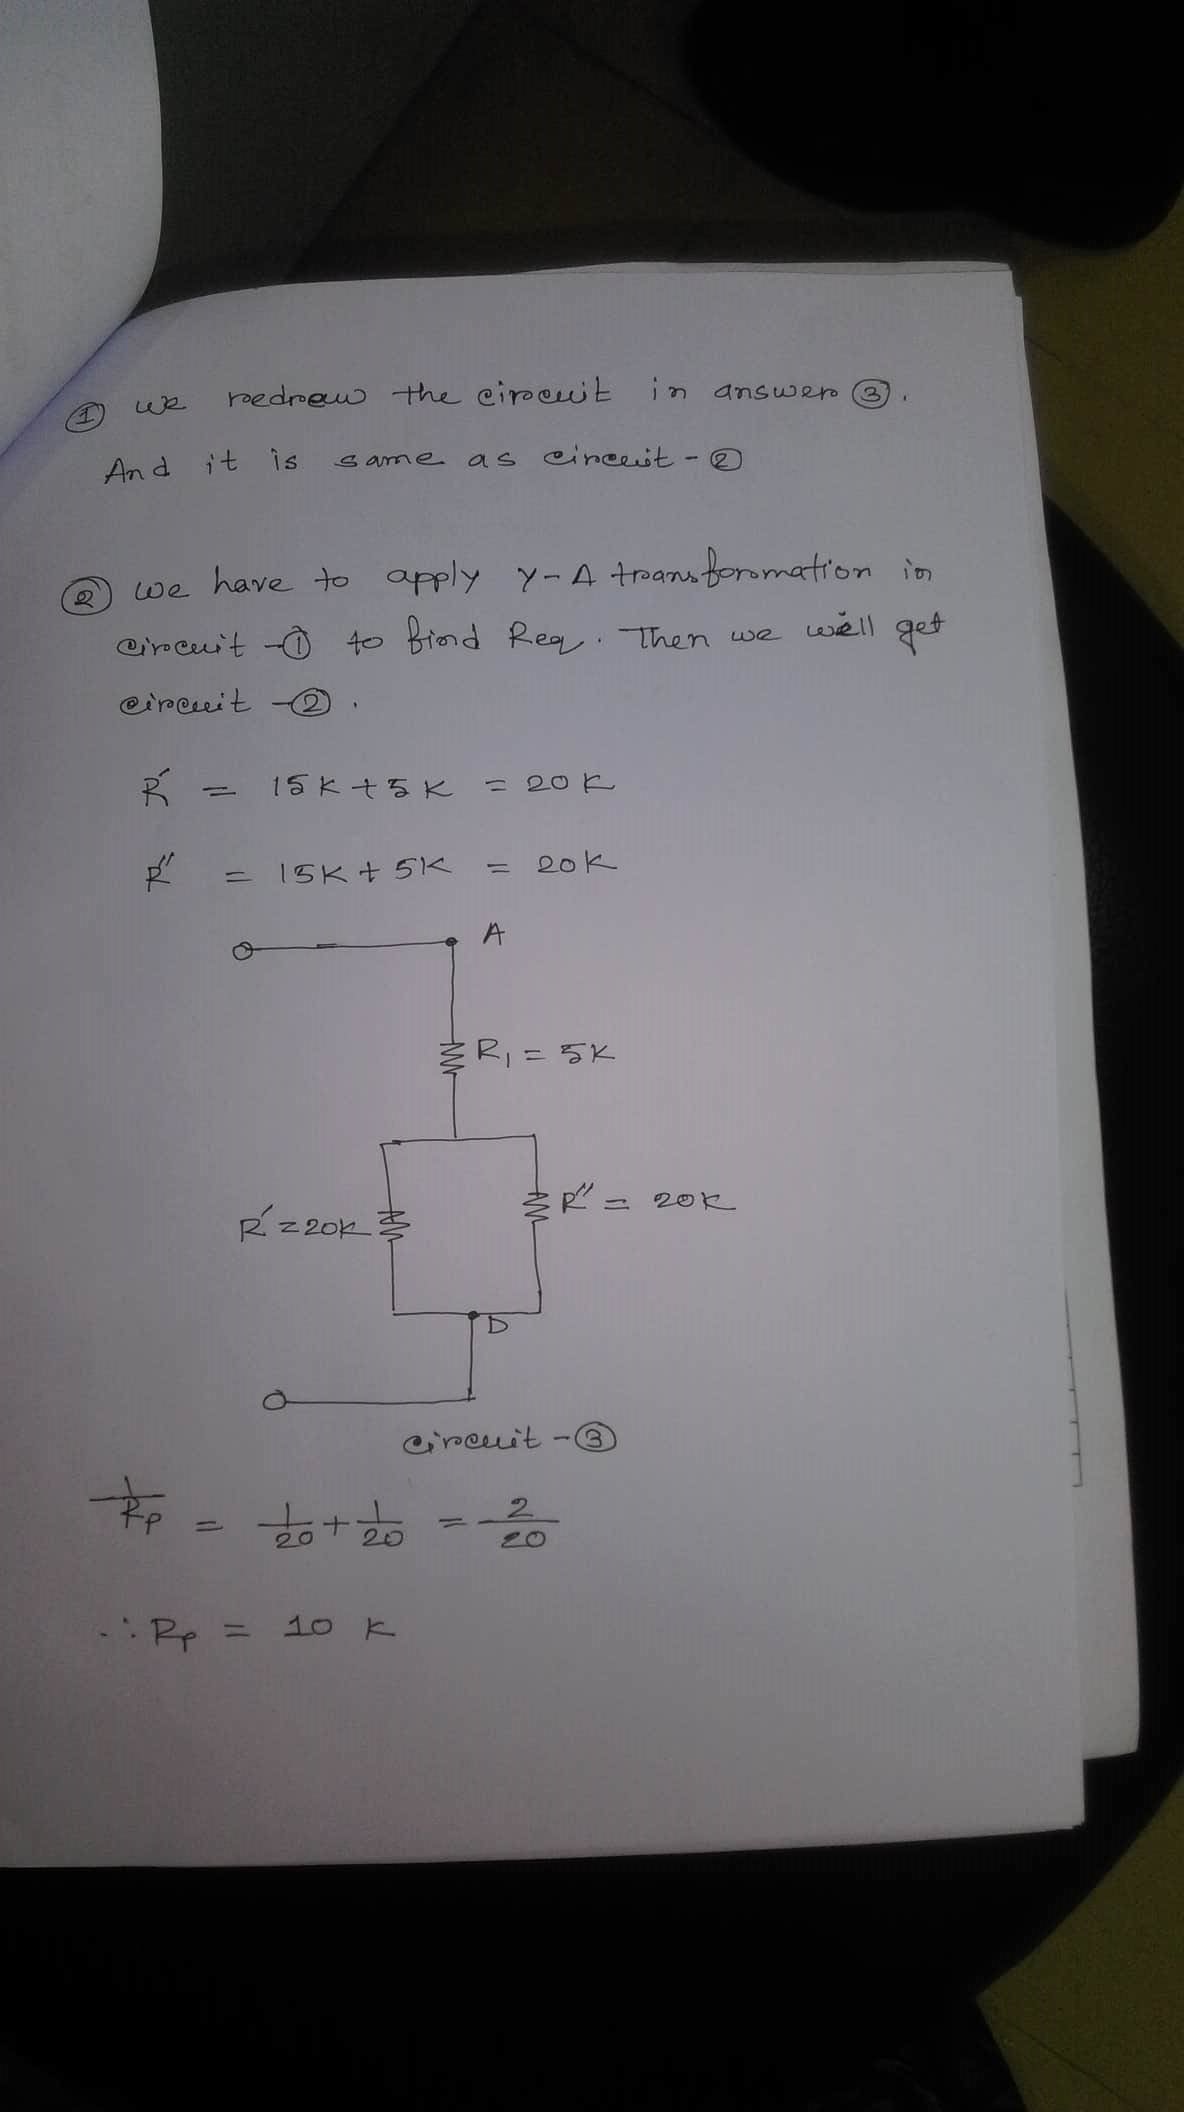 ① we redraw the circuit in answer ③.
And it is same as circuit - ②
② we have to apply Y-Δ transformation in
circuit -① to find Req. Then we will get
circuit -②.
R' = 15K + 5K = 20K
R'' = 15K + 5K = 20K
A
R₁ = 5K
R'' = 20K
R' = 20K
D
circuit - ③
1/Rp = 1/20 + 1/20 = 2/20
∴ Rp = 10 K